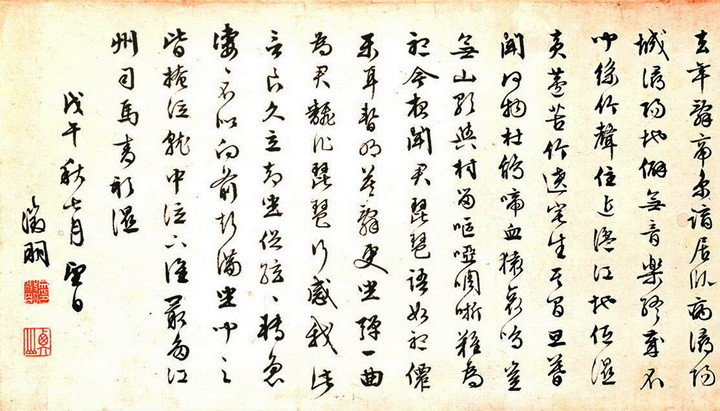 去年辭帝京謫居臥病潯陽
城潯陽地僻無音樂終歲不
聞絲竹聲住近湓江地低濕
黃蘆苦竹遶宅生其間旦暮
聞何物杜鵑啼血猿哀鳴豈
無山歌與村笛嘔啞啁哳難為
聽今夜聞君琵琶語如聽僊
樂耳暫明莫辭更坐彈一曲
為君翻作琵琶行感我此
言良久立却坐促絃〻轉急
淒〻不似向前聲滿坐聞之
皆掩泣就中泣下誰最多江
州司馬青衫濕
戊午秋七月望日